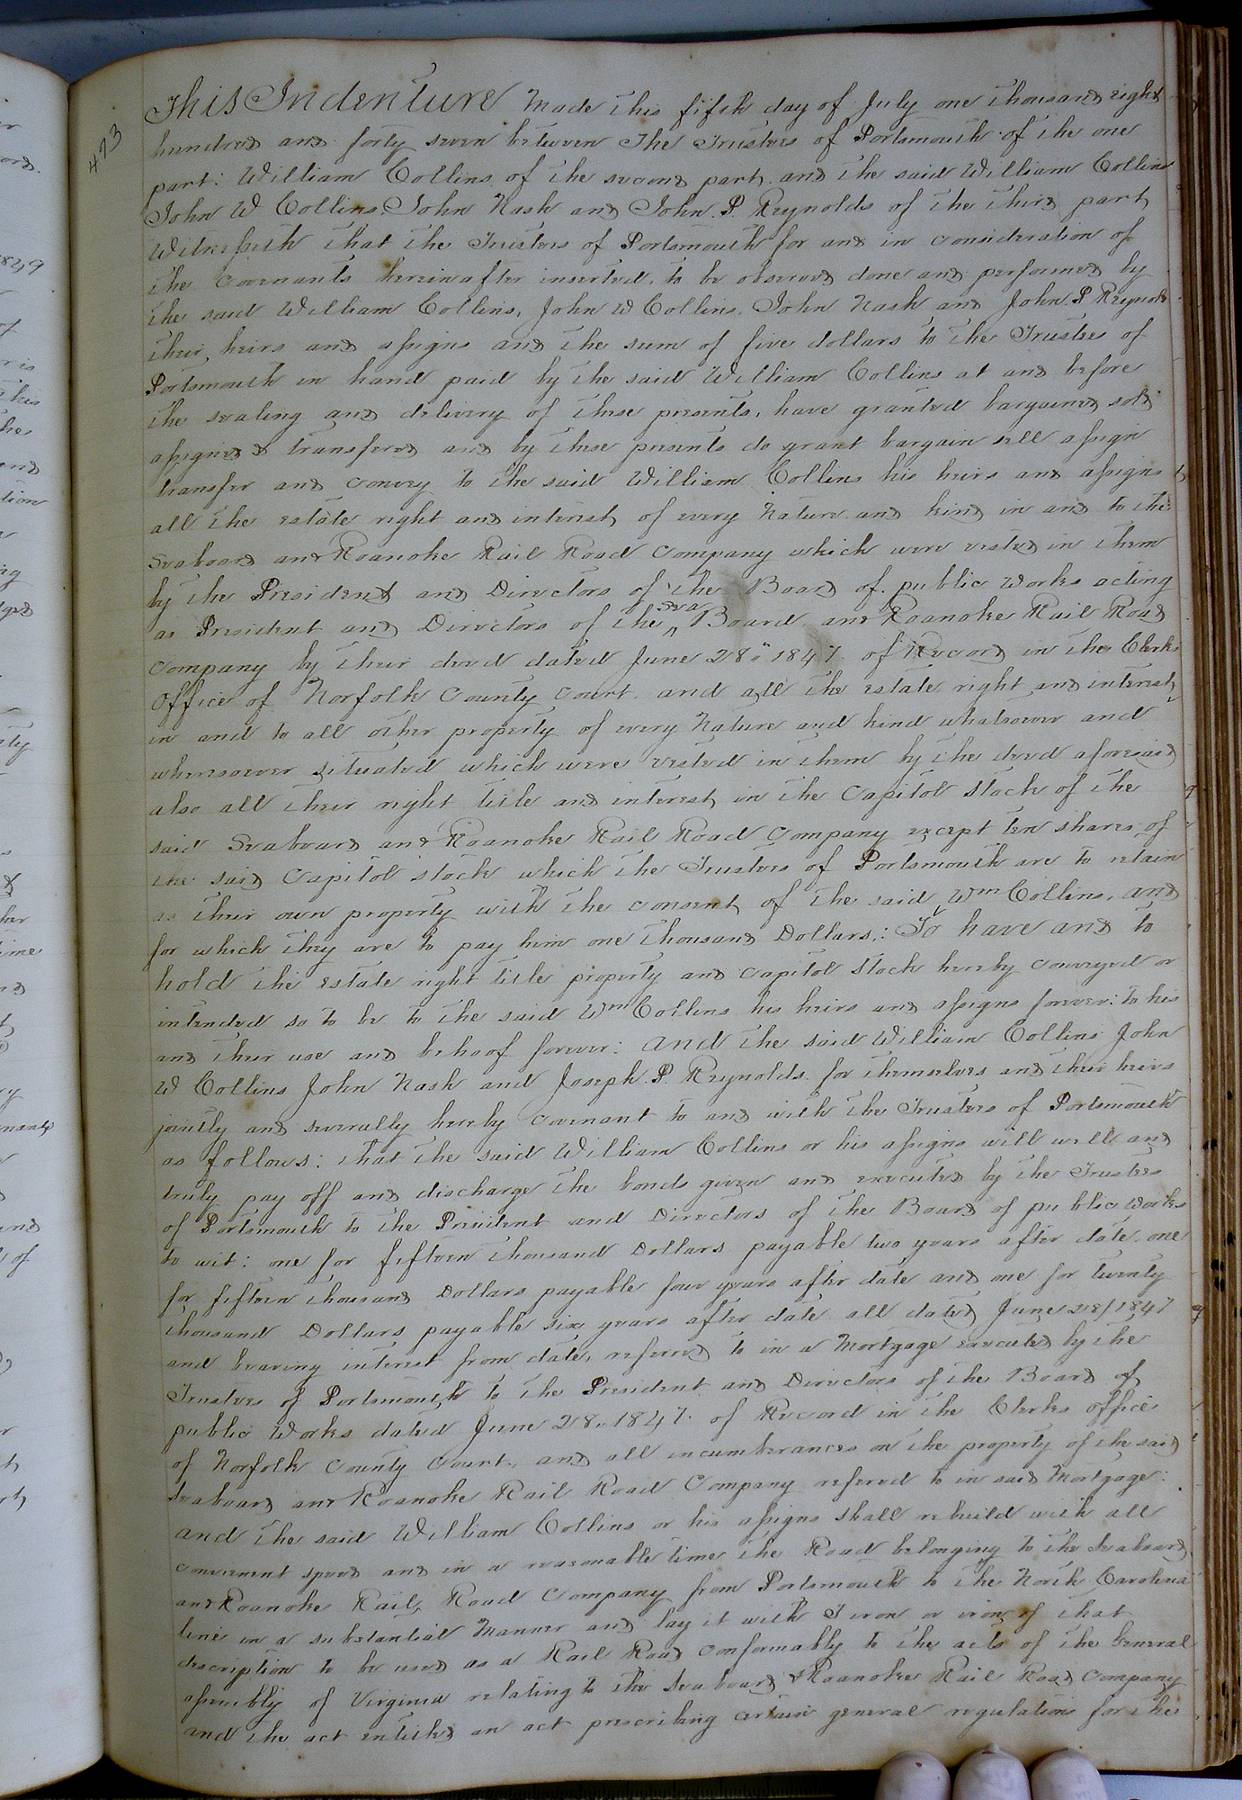 473
This Indenture Made this fifth day of July one thousand eight
hundred and forty seven between The Trustees of Portsmouth of the one
part: William Collins of the second part and the said William Collins
John W Collins, John Nash and John P. Reynolds of the third part
Witnesseth that the Trustees of Portsmouth for and in consideration of
the Covenants hereinafter inserted, to be observed done and performed by
the said William Collins, John W Collins, John Nash and John P Reynolds
their heirs and assigns and the sum of five dollars to the Trustees of
Portsmouth in hand paid by the said William Collins at and before
the sealing and delivery of these presents, have granted bargained sold
assigned & transfered and by these presents do grant bargain sell assign
transfer and convey to the said William Collins his heirs and assigns
all the estate right and interest of every Nature and kind in and to the
Seaboard and Roanoke Rail Road Company which were vested in them
by the President and Directors of the Board of public works acting
as President and Directors of the Sea Board and Roanoke Rail Road
Company by their deed dated June 28" 1847 of Record in the Clerks
Office of Norfolk County Court and all the estate right and interest
in and to all other property of every Nature and kind whatsoever and
wheresoever situated which were vested in them by the deed aforesaid
also all their right title and interest in the Capitol Stock of the
said Seaboard and Roanoke Rail Road Company except ten shares of
the said Capitol stock which the Trustees of Portsmouth are to retain
as their own property with the consent of the said Wm Collins, and
for which they are to pay him one thousand Dollars: To have and to
hold the estate right title property and capitol Stock hereby conveyed or
intended so to be to the said Wm Collins his heirs and assigns forever: to his
and their use and behoof forever: and the said William Collins John
W Collins John Nash and Joseph P. Reynolds for themselves and their heirs
jointly and severally hereby covenant to and with the Trustees of Portsmouth
as follows: that the said William Collins or his assigns will well and
truly pay off and discharge the bonds given and executed by the Trustees
of Portsmouth to the President and Directors of the Board of public works
to wit: one for fifteen thousand Dollars payable two years after date one
for fifteen thousand Dollars payable four years after date and one for twenty
thousand Dollars payable six years after date all dated June 28/1847
and bearing interest from date, refered to in a Mortgage executed by the
Trustees of Portsmouth to the President and Directors of the Board of
public Works dated June 28. 1847. of Record in the Clerks office
of Norfolk County Court, and all incumberances on the property of the said
Seaboard and Roanoke Rail Road Company refered to in said Mortgage:
and the said William Collins or his assigns shall rebuild with all
convenient speed and in a reasonable time the Road belonging to the Seaboard
and Roanoke Rail Road Company from Portsmouth to the North Carolina
line in a substantial Manner and lay it with T iron or iron of that
description to be used as a Rail Road conformably to the acts of the General
assembly of Virginia relating to the Seaboard & Roanoke Rail Road Company
and the act entitled an act prescribing certain general regulations for the